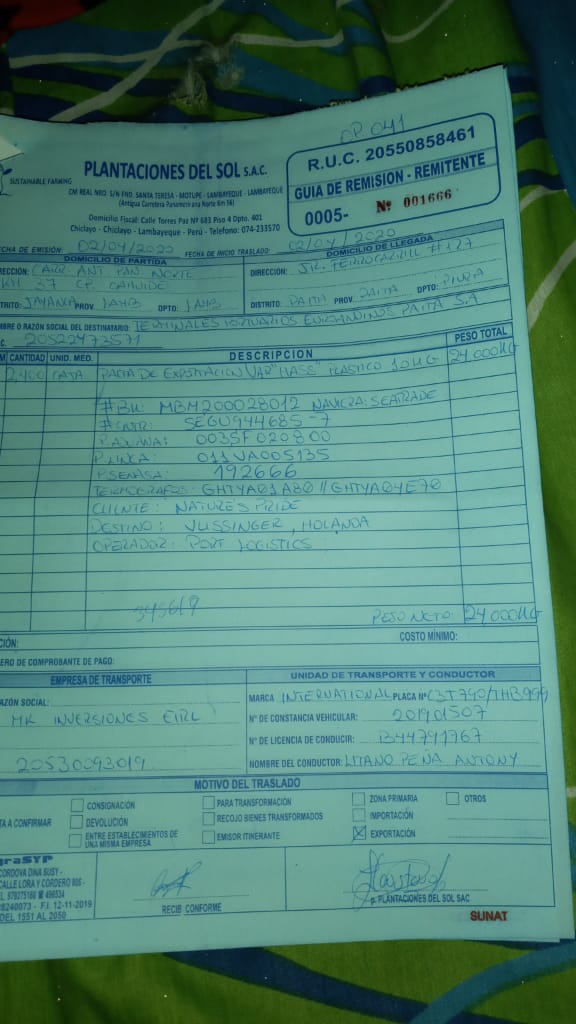 OP 041
R.U.C. 20550858461
GUIA DE REMISION - REMITENTE
0005- Nº 001666
PLANTACIONES DEL SOL S.A.C.
SUSTAINABLE FARMING
CM REAL NRO. S/N FND. SANTA TERESA - MOTUPE - LAMBAYEQUE - LAMBAYEQUE
(Antigua Carretera Panamericana Norte Km
Domicilio Fiscal: Calle Torres Paz Nº 683 Piso 4 Dpto. 401
Chiclayo - Chiclayo - Lambayeque - Perú - Telefono: 074-233570
ECHA DE EMISIÓN: 02/04/2020 FECHA DE INICIO TRASLADO: 02/04/2020
DOMICILIO DE PARTIDA
DOMICILIO DE LLEGADA
RECCIÓN: CARR. ANT PAN NORTE
KM 37 CP. CAHUIDE
DIRECCIÓN: JR. FERROCARRIL #127
TRITO: JAYANCA PROV. LAMB DPTO: LAMB
DISTRITO: PAITA PROV. PAITA DPTO: PIURA
MBRE O RAZÓN SOCIAL DEL DESTINATARIO: TERMINALES PORTUARIOS EUROANDINOS PAITA S.A
C. 20522473571
M CANTIDAD UNID. MED. DESCRIPCION PESO TOTAL
2,400 CAJA PALTA DE EXPORTACION VAR "HASS" PLASTICO 10KG 24.000KG
#BK: MBM200028012 NAVIERA: SEATRADE
#CNTR: SEGU944685-7
P. ADUANA: 003SF020800
P. LINEA: 011VA005135
P. SENASA: 192666
TERMOGRAFOS: GHTYA01A80 // GHTYA04E70
CLIENTE: NATURE'S PRIDE
DESTINO: VLISSINGER, HOLANDA
OPERADOR: PORT LOGISTICS
PESO NETO: 24.000KG
CIÓN: COSTO MÍNIMO:
ERO DE COMPROBANTE DE PAGO:
EMPRESA DE TRANSPORTE
UNIDAD DE TRANSPORTE Y CONDUCTOR
AZÓN SOCIAL:
MK INVERSIONES EIRL
20530093019
MARCA INTERNATIONAL PLACA Nº C3T740/THB999
Nº DE CONSTANCIA VEHICULAR: 201901507
Nº DE LICENCIA DE CONDUCIR: B44791767
NOMBRE DEL CONDUCTOR: LITANO PEÑA ANTONY
MOTIVO DEL TRASLADO
CONSIGNACIÓN PARA TRANSFORMACIÓN ZONA PRIMARIA OTROS
TA A CONFIRMAR DEVOLUCIÓN RECOJO BIENES TRANSFORMADOS IMPORTACIÓN
ENTRE ESTABLECIMIENTOS DE UNA MISMA EMPRESA EMISOR ITINERANTE EXPORTACIÓN
graSYP
CORDOVA DINA SUSY -
CALLE LORA Y CORDERO 805 -
8240073 - F.I. 12-11-2019
DEL 1551 AL 2050
RECIBI CONFORME
p. PLANTACIONES DEL SOL SAC
SUNAT